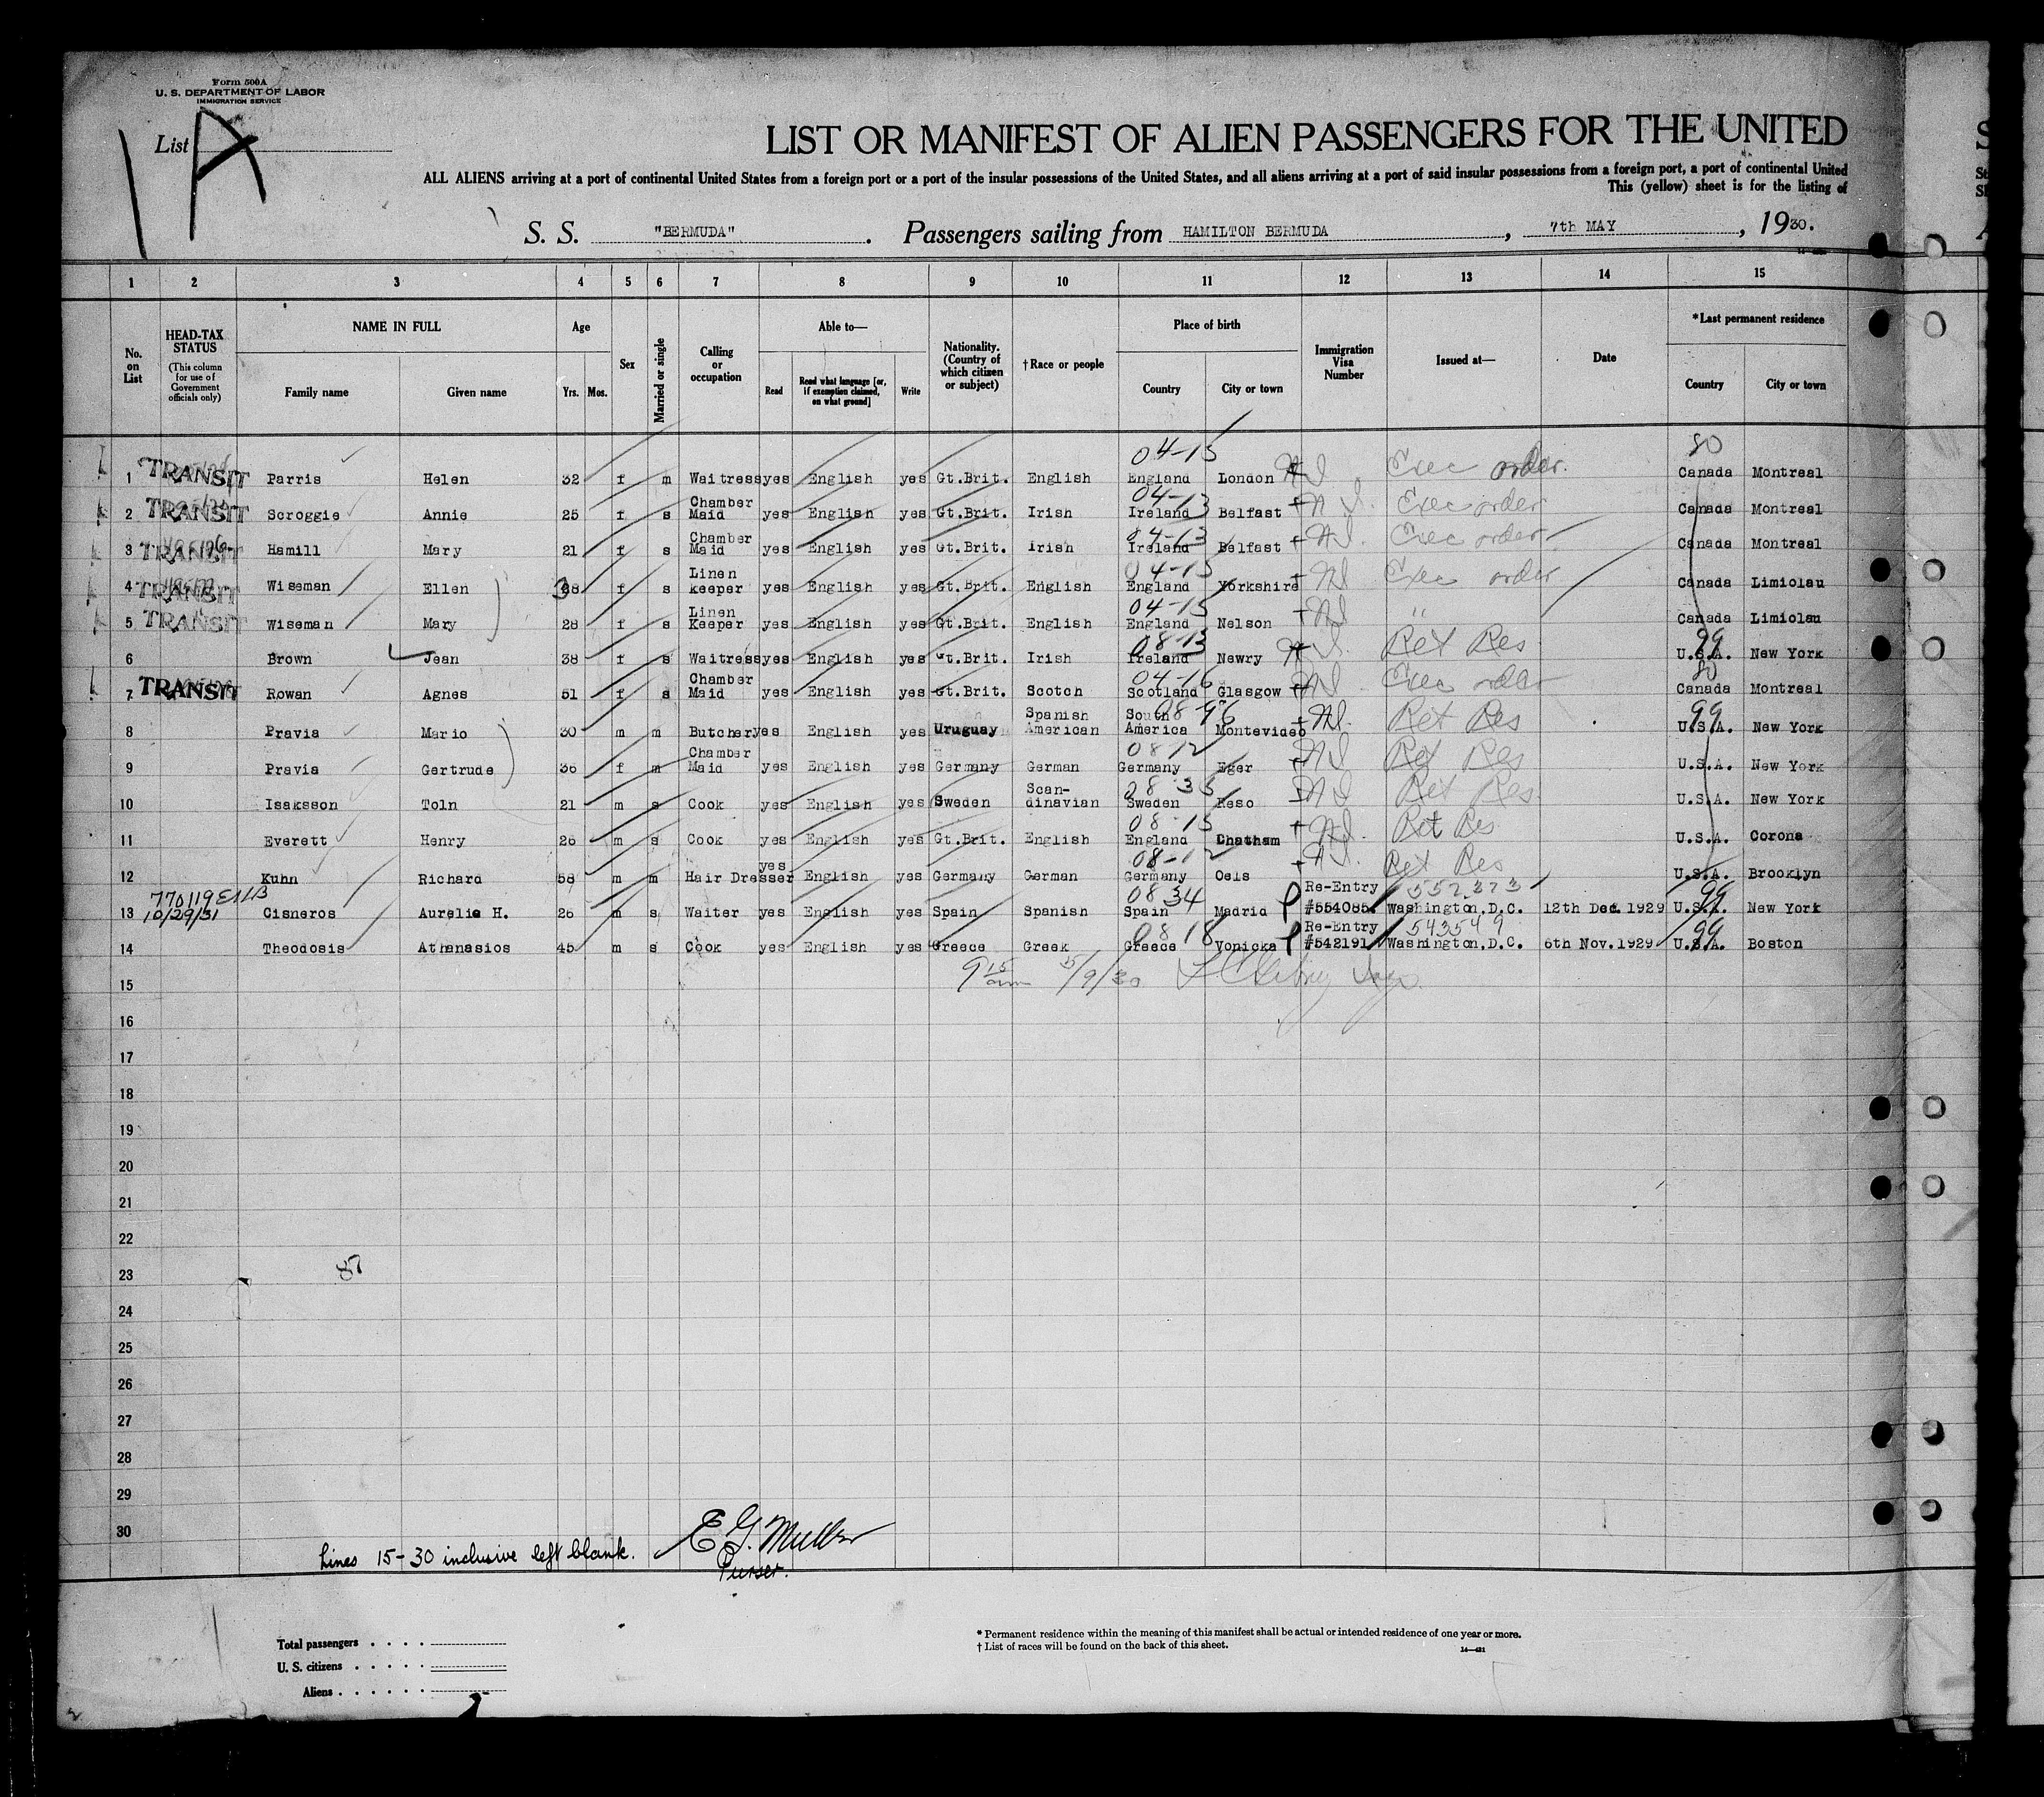 Form 500A
U. S. DEPARTMENT OF LABOR
IMMIGRATION SERVICE
List 1 A
LIST OR MANIFEST OF ALIEN PASSENGERS FOR THE UNITED
ALL ALIENS arriving at a port of continental United States from a foreign port or a port of the insular possessions of the United States, and all aliens arriving at a port of said insular possessions from a foreign port, a port of continental United
This (yellow) sheet is for the listing of
S. S. "BERMUDA". Passengers sailing from HAMILTON BERMUDA, 7th MAY, 1930.
1 2 3 4 5 6 7 8 9 10 11 12 13 14 15
No. on List
HEAD-TAX STATUS (This column for use of Government officials only)
NAME IN FULL Family name Given name
Age Yrs. Mos.
Sex
Married or single
Calling or occupation
Able to— Read Read what language [or, if exemption claimed, on what ground] Write
Nationality. (Country of which citizen or subject)
†Race or people
Place of birth Country City or town
Immigration Visa Number
Issued at—
Date
*Last permanent residence Country City or town
1 TRANSIT Parris Helen 32 f m Waitress yes English yes Gt.Brit. English 04-15 England London NI Exec order. 80 Canada Montreal
2 TRANSIT Scroggie Annie 25 f s Chamber Maid yes English yes Gt.Brit. Irish 04-13 Ireland Belfast NI Exec order Canada Montreal
3 TRANSIT Hamill Mary 21 f s Chamber Maid yes English yes Gt.Brit. Irish 04-13 Ireland Belfast NI. Exec order Canada Montreal
4 TRANSIT Wiseman Ellen 38 f s Linen keeper yes English yes Gt.Brit. English 04-15 England Yorkshire NI Exec order Canada Limiolau
5 TRANSIT Wiseman Mary 28 f s Linen Keeper yes English yes Gt.Brit. English 04-15 England Nelson NI " Canada Limiolau
6 Brown Jean 38 f s Waitress yes English yes Gt.Brit. Irish 08-13 Ireland Newry NI. Ret Res 99 U.S.A. New York
7 TRANSIT Rowan Agnes 51 f s Chamber Maid yes English yes Gt.Brit. Scotch 04-16 Scotland Glasgow NI Exec order 80 Canada Montreal
8 Pravia Mario 30 m m Butcher yes English yes Uruguay Spanish American 08-96 South America Montevideo NI. Ret Res 99 U.S.A. New York
9 Pravia Gertrude 36 f m Chamber Maid yes English yes Germany German 08 12 Germany Eger NI Ret Res U.S.A. New York
10 Isaksson Toln 21 m s Cook yes English yes Sweden Scan-dinavian 08 35 Sweden Reso NI Ret Res. U.S.A. New York
11 Everett Henry 26 m s Cook yes English yes Gt.Brit. English 08-15 England Chatham NI. Ret Res U.S.A. Corona
12 Kuhn Richard 58 m m Hair Dresser yes English yes Germany German 08-12 Germany Oels NI. Ret Res U.S.A. Brooklyn
770119
10/29/31
13 Cisneros Aurelio H. 26 m s Waiter yes English yes Spain Spanish 08 34 Spain Madrid Re-Entry #554085. 552373 Washington,D.C. 12th Dec. 1929 99 U.S.A. New York
14 Theodosis Athanasios 45 m s Cook yes English yes Greece Greek 08 18 Greece Vonicka Re-Entry #542191 543549 Washington,D.C. 6th Nov.1929 99 U.S.A. Boston
15 9 15 am 5/9/30
16
17
18
19
20
21
22
23 87
24
25
26
27
28
29
30
Lines 15-30 inclusive left blank. E G. Muller
Purser.
Total passengers
U. S. citizens
Aliens
* Permanent residence within the meaning of this manifest shall be actual or intended residence of one year or more.
† List of races will be found on the back of this sheet.
14—421